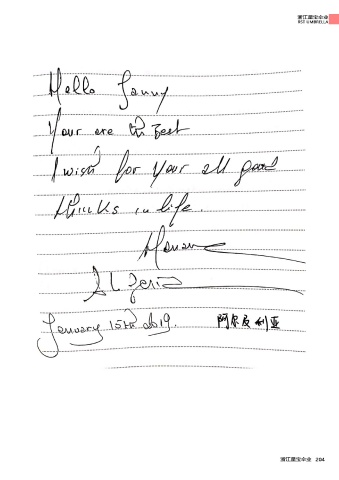 浙江星宝伞业
RST UMBRELLA
Hello Jenny
Your are the Best
I wish for your all good
thinks in life.
ALgeria
January 15th 2019. 阿尔及利亚
浙江星宝伞业 204